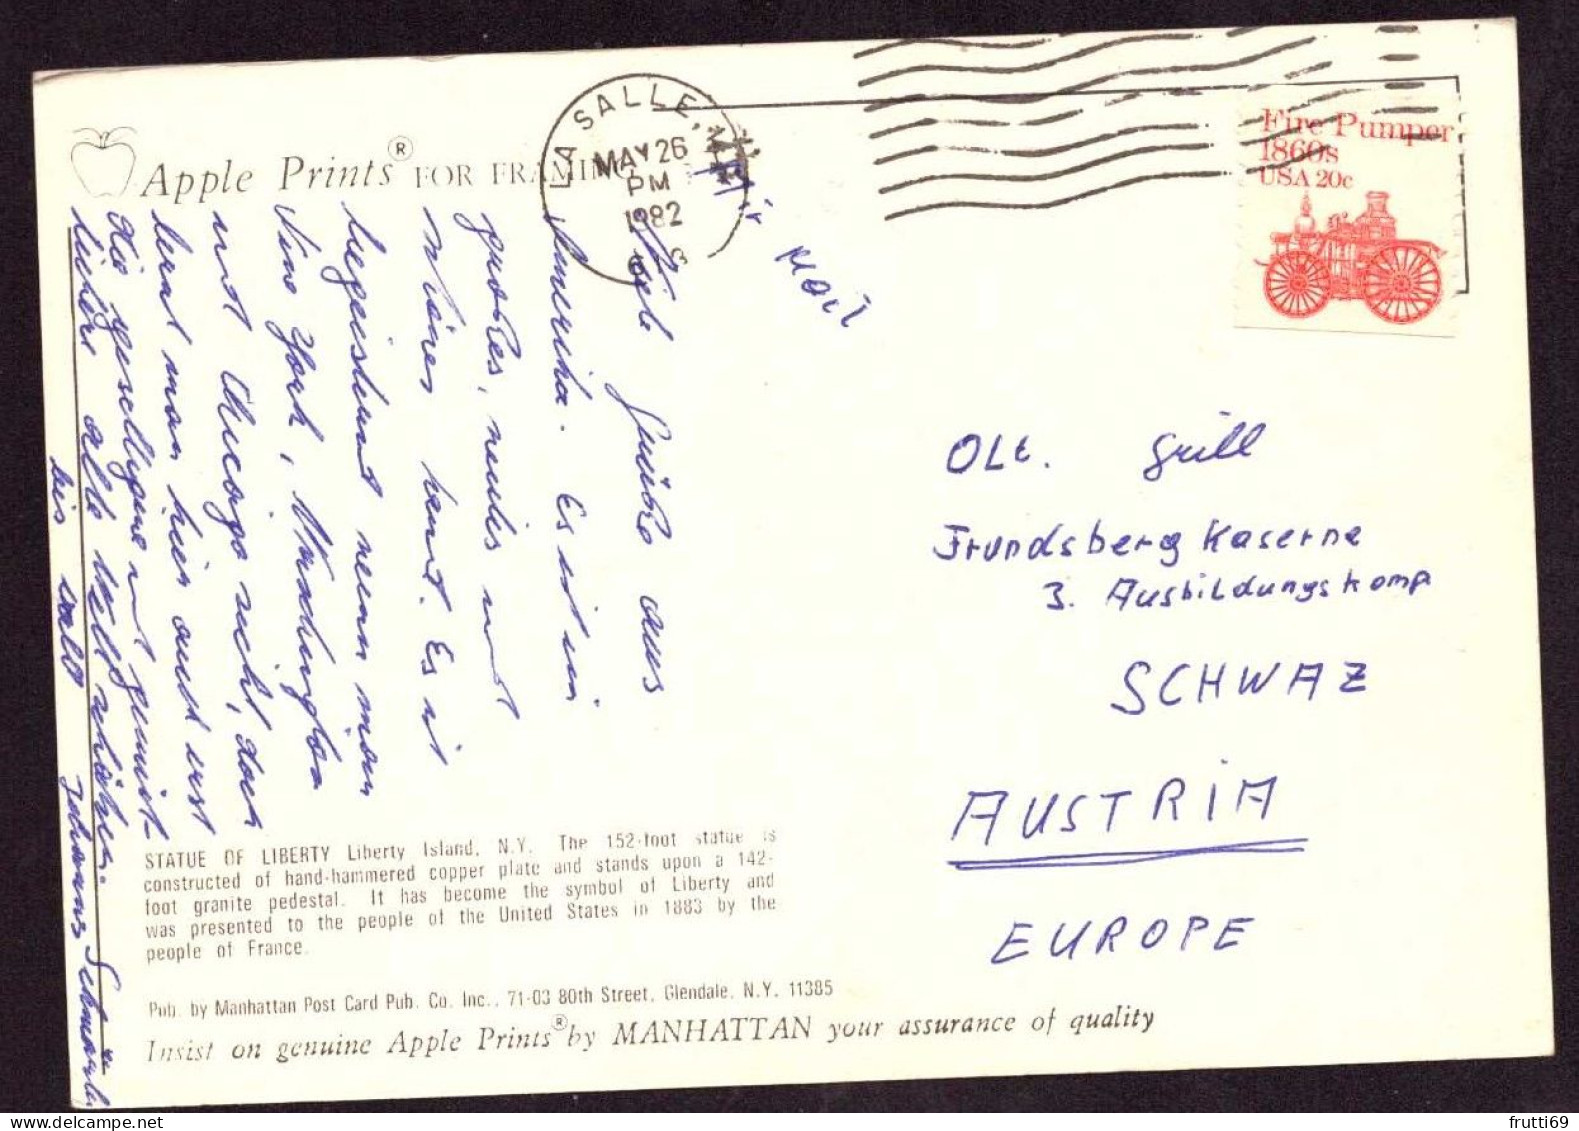 Apple Prints® FOR FRAMING
LA SALLE,
MAY 26
PM
1982
Air Mail
Fire Pumper
1860s
USA 20c
Viele Grüße aus
Amerika. Es ist ein
großes, und
kleines Land. Es ist
begeistert wenn man
New York, Washington
und Chicago sieht, doch
lernt man hier auch erst
die gesellige und gemüt-
liche alte Welt schätzen.
bis bald Johannes
Olt. Grill
Frundsberg Kaserne
3. Ausbildungskomp
SCHWAZ
AUSTRIA
EUROPE
STATUE OF LIBERTY Liberty Island, N.Y. The 152-foot statue is
constructed of hand-hammered copper plate and stands upon a 142-
foot granite pedestal. It has become the symbol of Liberty and
was presented to the people of the United States in 1883 by the
people of France.
Pub. by Manhattan Post Card Pub. Co. Inc., 71-03 80th Street, Glendale, N.Y. 11385
Insist on genuine Apple Prints® by MANHATTAN your assurance of quality
frutti69